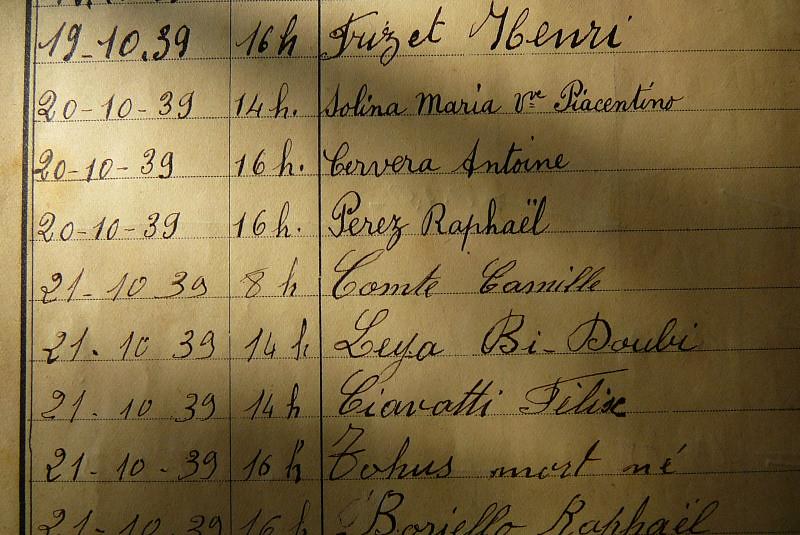 19-10.39 16h Frizet Henri
20-10-39 14h. Solina Maria Vve Piacentino
20-10-39 16h. Cervera Antoine
20-10-39 16h. Perez Raphaël
21-10 39 8h Comte Camille
21. 10 39 14h Leya Bi-Doubi
21. 10 39 14h Ciavatti Félix
21-10-39 16h mort né
21-10-39 16h Boriello Raphaël